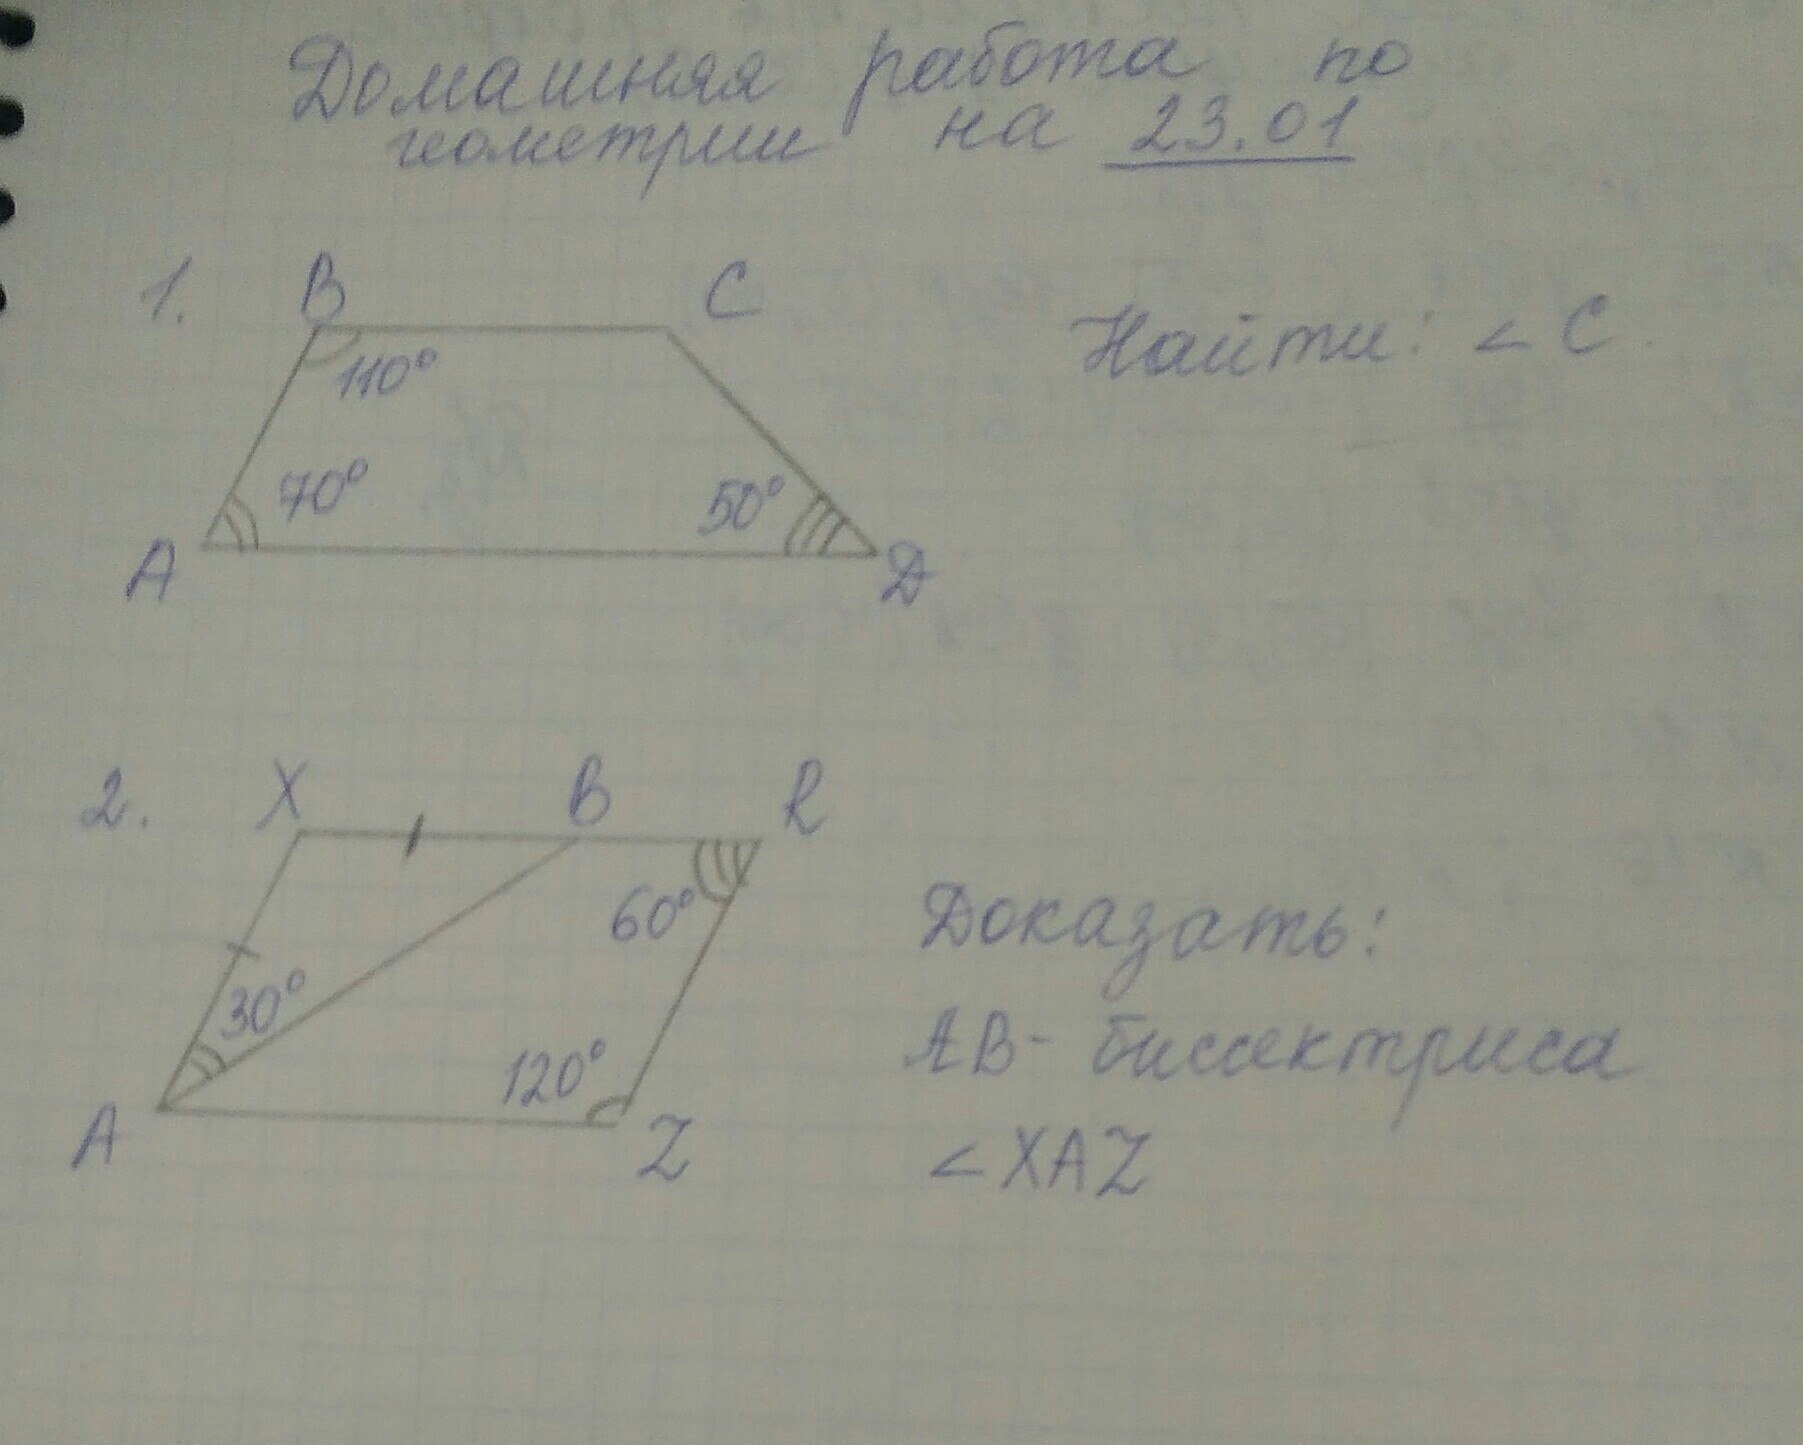 Домашняя работа по
геометрии на 23.01
1. B C Найти: <C
110°
70° 50°
A D
2. X B R
60° Доказать:
30° AB - биссектриса
120°
A Z <XAZ